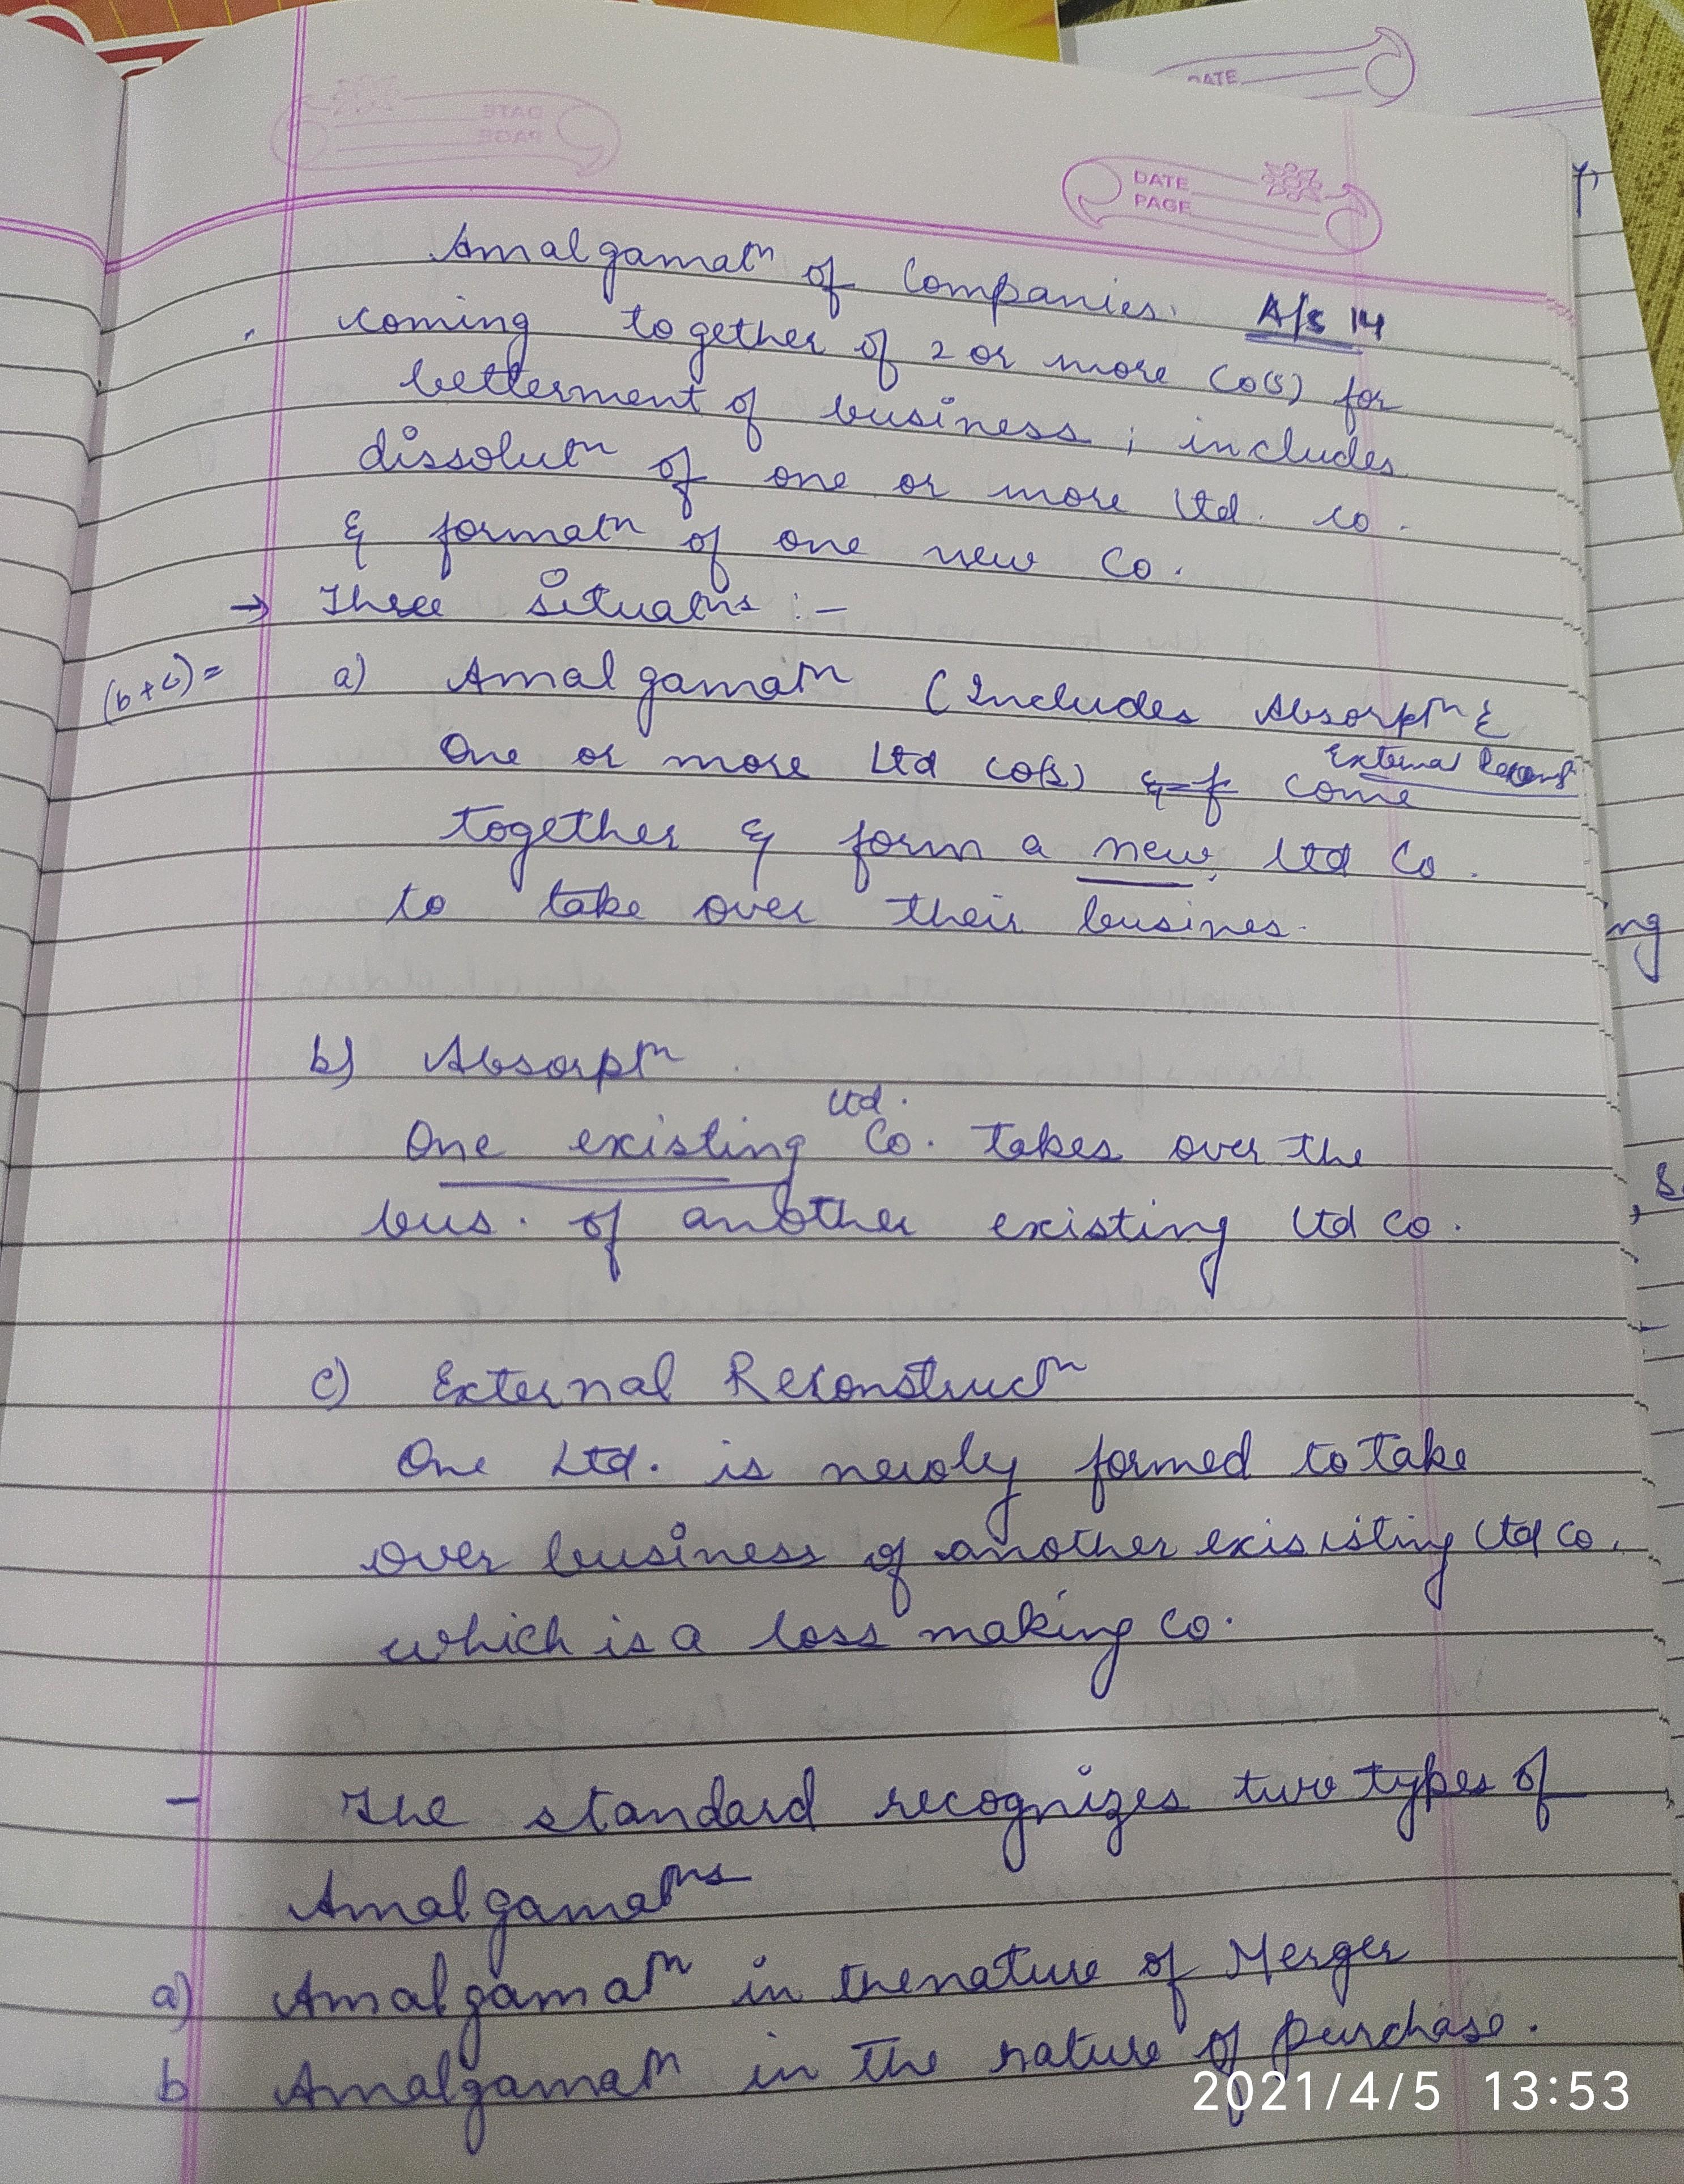 DATE
DATE
PAGE
Amalgamatn of Companies. A/s 14
coming together of 2 or more Co(s) for
betterment of business ; includes
dissolutn of one or more ltd. co.
& formatn of one new Co.
→ Three situatns :-
(b+c)= a) Amalgamatn (Includes Absorptn &
External Reconst
One or more Ltd co(s) come
together & form a new ltd Co.
to take over their busines.
b) Absorptn
ltd.
One existing Co. takes over the
bus. of another existing ltd co.
c) External Reconstructn
One Ltd. is newly formed to take
over business of another exisisting ltd co.
which is a loss making co.
- The standard recognizes two types of
Amalgamatns
a) Amalgamatn in the nature of Merger
b Amalgamatn in the nature of purchase.
2021/4/5 13:53